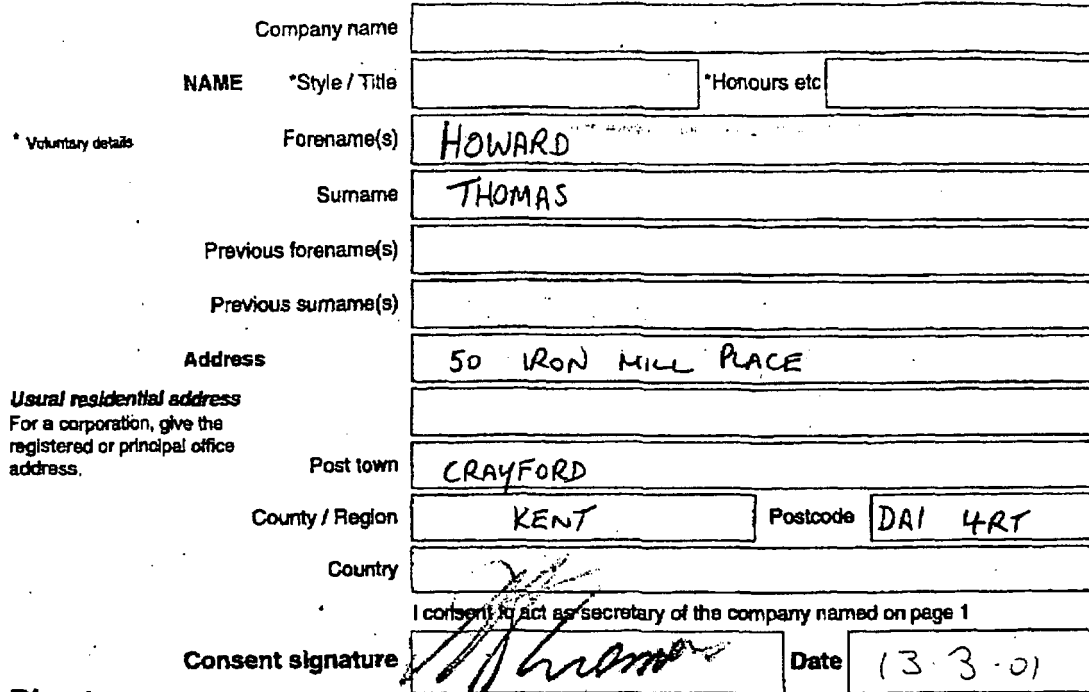 Company name
NAME *Style / Title *Honours etc
* Voluntary details Forename(s) HOWARD
Surname THOMAS
Previous forename(s)
Previous surname(s)
Address 50 IRON MILL PLACE
Usual residential address
For a corporation, give the
registered or principal office
address.
Post town CRAYFORD
County / Region KENT Postcode DA1 4RT
Country
I consent to act as secretary of the company named on page 1
Consent signature Date 13.3.01